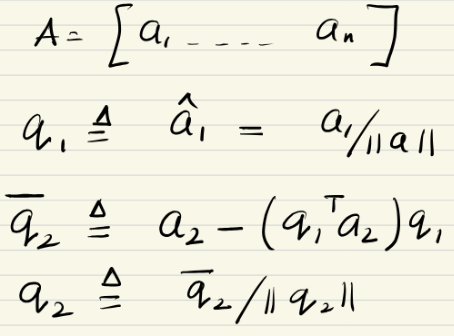 A = [ a₁ - - - - - aₙ ]
q₁ ≜ â₁ = a₁/‖a‖
q̅₂ ≜ a₂ - (q₁ᵀa₂)q₁
q₂ ≜ q̅₂/‖q₂‖